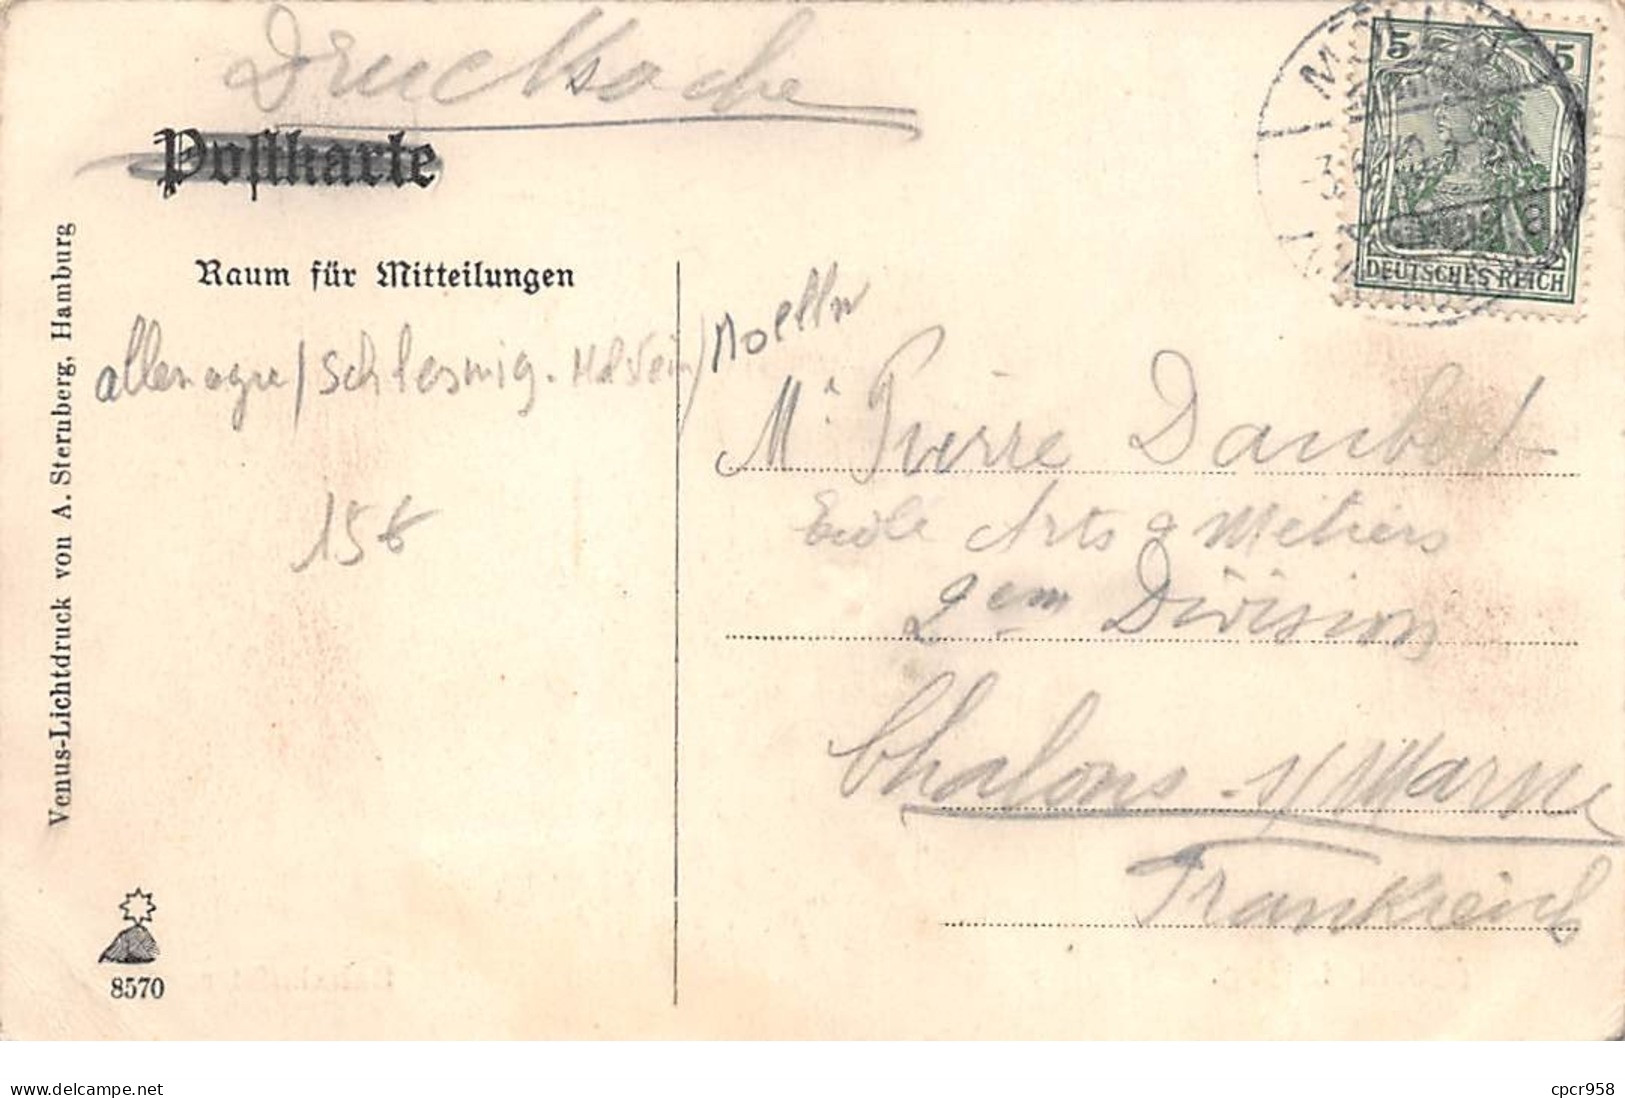 Drucksache
Postkarte
Raum für Mitteilungen
allemagne / Schleswig-Holstein / Moelln
15€
5 5
DEUTSCHES REICH
Mr Pierre Daubot
Ecole Arts & Metiers
2em Division
Chalons s/ Marne
Frankreich
Venus-Lichtdruck von A. Sternberg, Hamburg
8570
www.delcampe.net
cpcr958